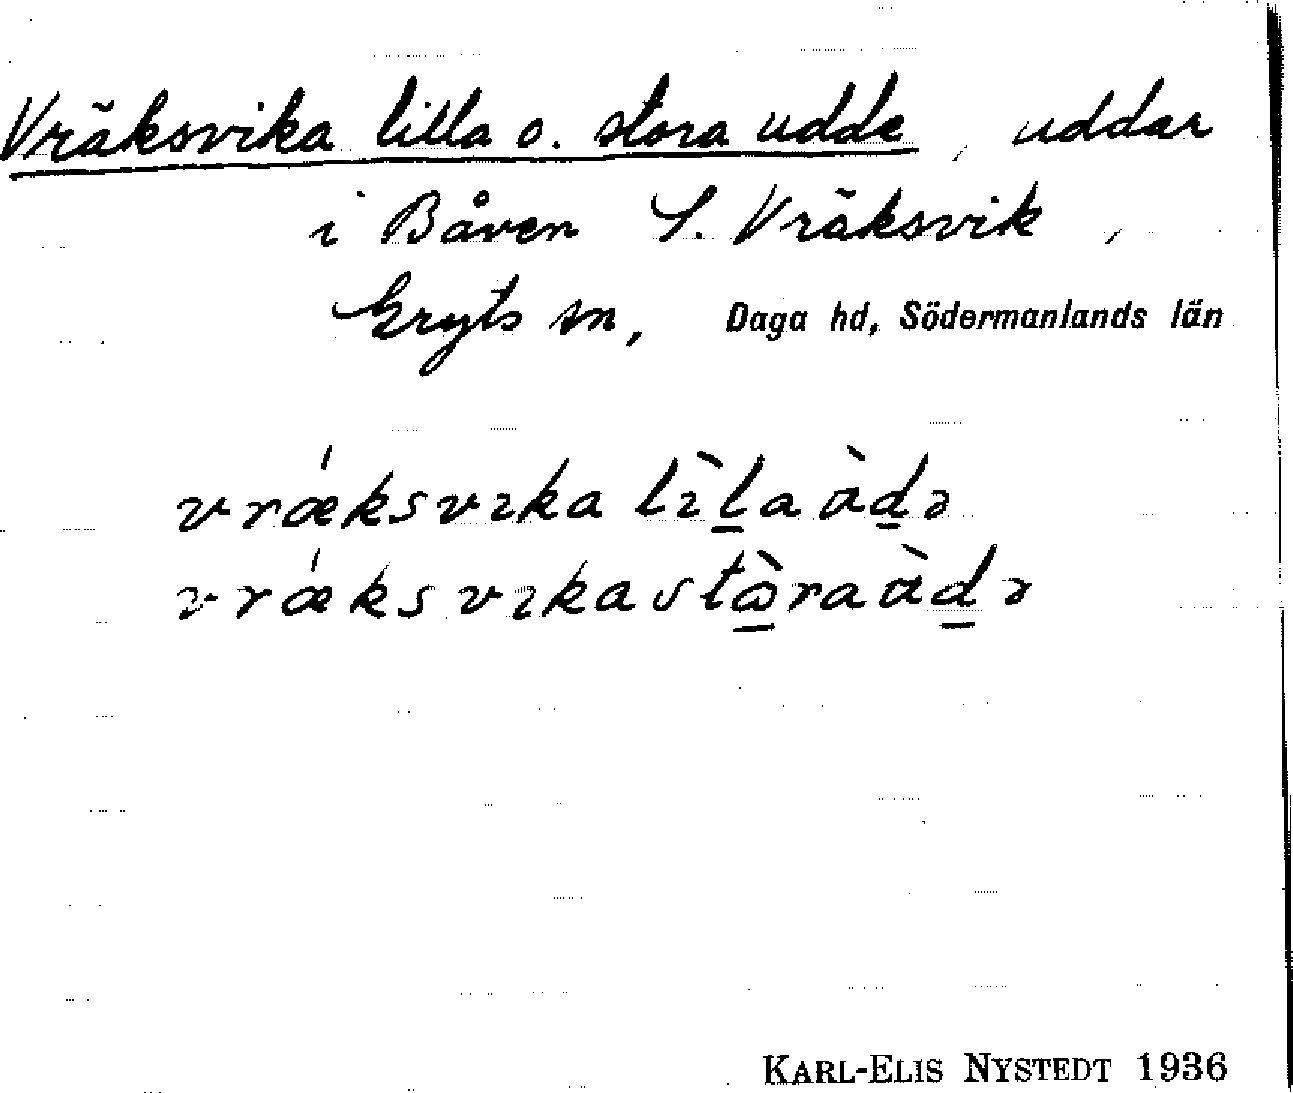 Vräksvika lilla o. stora udde, uddar
i Båven S. Vräksvik,
Gryts sn, Daga hd, Södermanlands län
vrǽksvɪka lɪ̀l̲aàd̲ə
vrǽksvɪkastὼ̲raàd̲ə
KARL-ELIS NYSTEDT 1936